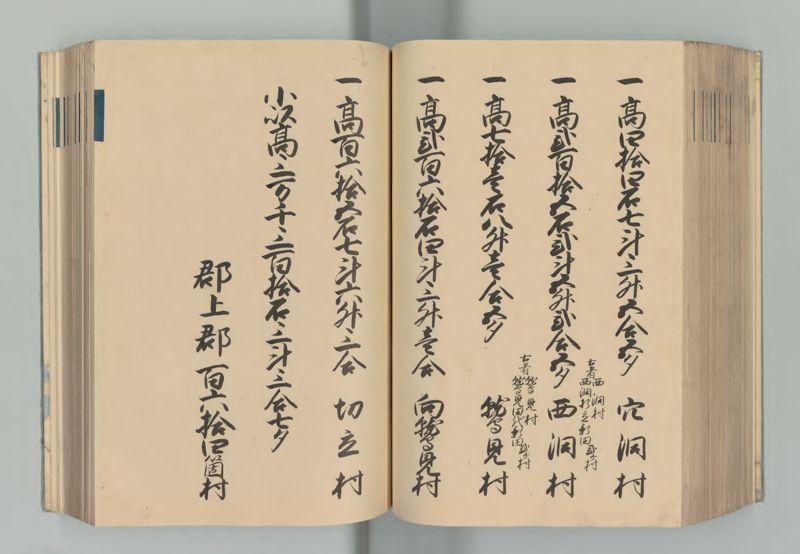 一 高四拾四石七斗三升五合五夕 穴洞村
古者 西洞村
西洞村之新田弐ヶ村
一 高弐百拾五石弐斗五升弐合五夕 西洞村
古者 鷲見村
鷲見田代新田弐ヶ村
一 高七拾壱石八升壱合五夕 鷲見村
一 高弐百六拾石四斗三升壱合 向鷲見村
一 高百六拾五石七斗六升三合 切立村
小以高三万千三百拾石三斗三合七夕
郡上郡 百六拾四箇村